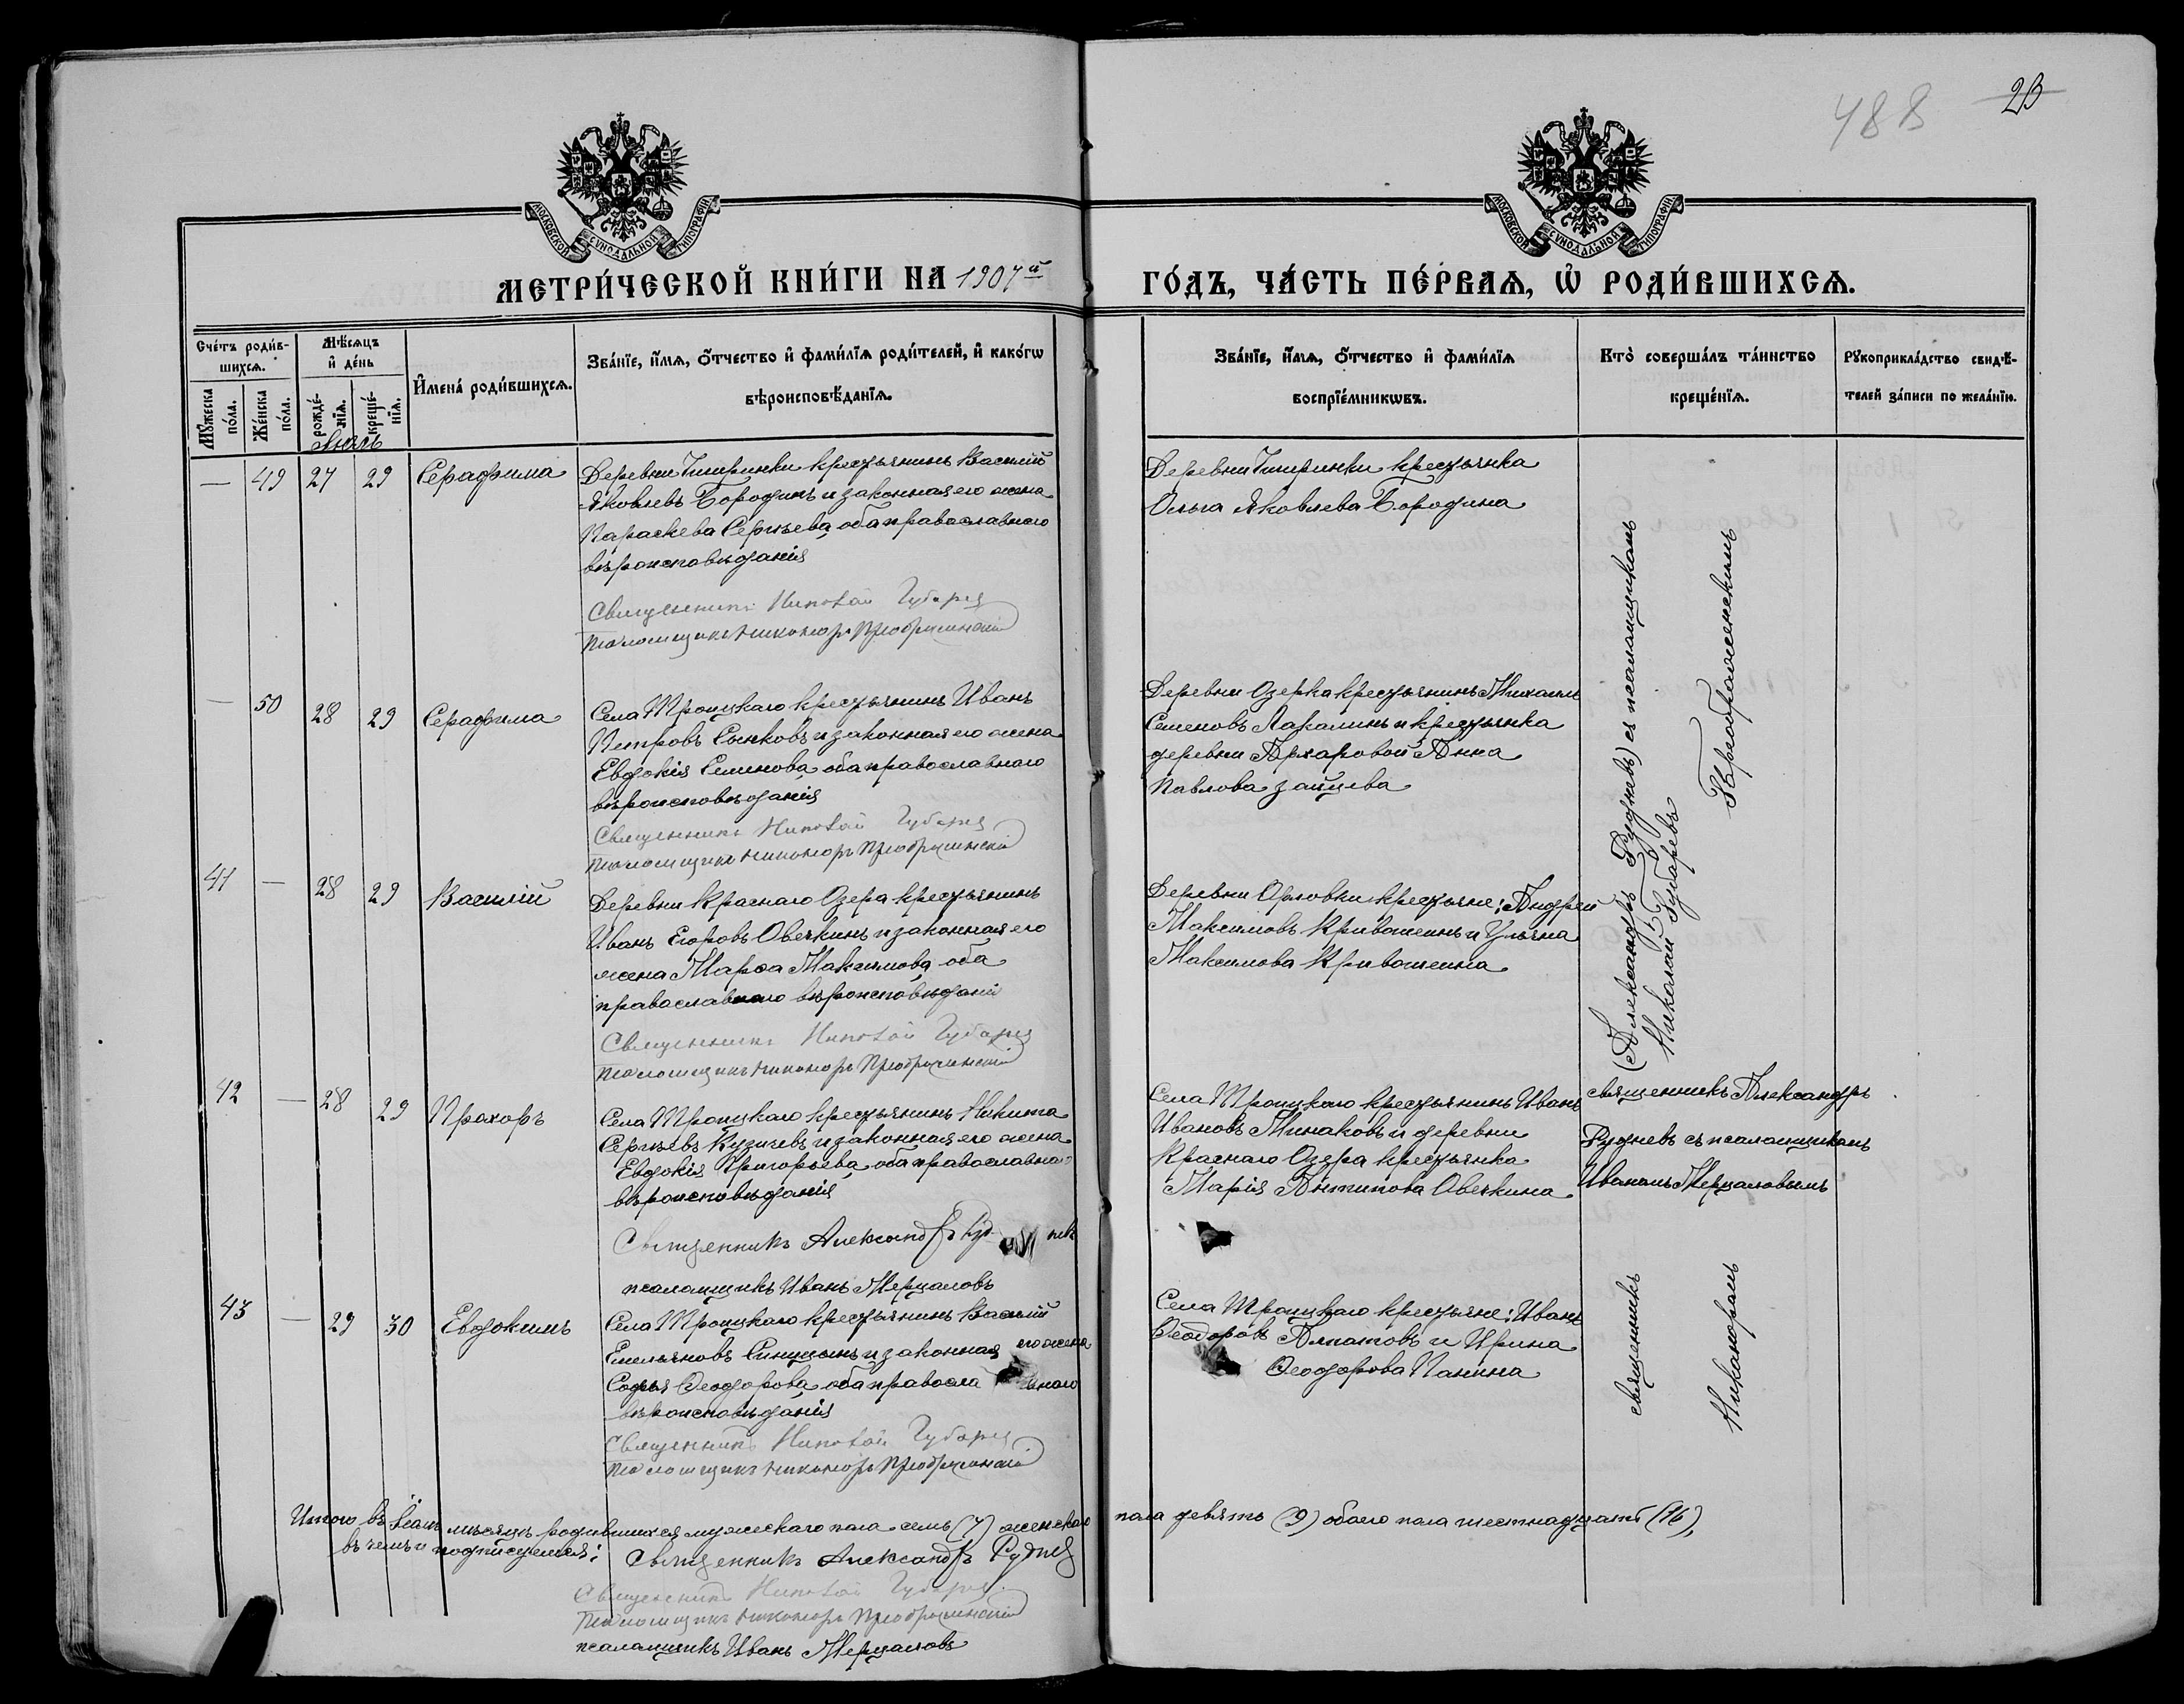 488 23
МОСКОВСКОЙ СѴНОДАЛЬНОЙ ТИПОГРАФІИ
МОСКОВСКОЙ СѴНОДАЛЬНОЙ ТИПОГРАФІИ
МЕТРИ́ЧЕСКОЙ КНИ́ГИ НА 1907й
ГО́ДЪ, ЧА́СТЬ ПЕ́РВАѦ, Ѡ РОДИ́ВШИХСѦ.
Сче́тъ роди́в-
шихсѧ.
Мꙋ́жеска
по́ла.
Же́нска
по́ла.
Мѣ́сѧцъ
и҆ де́нь
рожде́-
нїѧ.
креще́-
нїѧ.
И҆мена̀ роди́вшихсѧ.
Зва́нїе, и҆́мѧ, ѻ҆́тчество и҆ фами́лїѧ роди́телей, и҆ како́гѡ
вѣроисповѣ́данїѧ.
Зва́нїе, и҆́мѧ, ѻ҆́тчество и҆ фами́лїѧ
воспрїе́мникѡвъ.
Кто̀ соверша́лъ та́инство
креще́нїѧ.
Рꙋкоприкла́дство свидѣ́-
телей за́писи по жела́нїю.
Іюль
— 49 27 29 Серафима
Деревни крестьянинъ Василій
Яковлевъ Бородинъ и законная его жена
Параскева Сергѣева, оба православнаго
вѣроисповѣданія
Священникъ Николай Губарев
Псаломщикъ Никаноръ Преображенскій
Деревни крестьянка
Ольга Яковлева Бородина
— 50 28 29 Серафима
Села Троицкаго крестьянинъ Иванъ
Петровъ Сычковъ и законная его жена
Евдокія Семенова, оба православнаго
вѣроисповѣданія
Священникъ Николай Губарев
Псаломщикъ Никаноръ Преображенскій
Деревни Озерка крестьянинъ Михаилъ
Семеновъ и крестьянка
деревни Архаровой Анна
Павлова Зайцева
(Александръ Рудневъ) съ псаломщикомъ
Николай Губаревъ
Преображенскимъ
41 — 28 29 Василій
Деревни Краснаго Озера крестьянинъ
Иванъ Егоровъ Овечкинъ и законная его
жена Марѳа Максимова, оба
православнаго вѣроисповѣданія
Священникъ Николай Губарев
Псаломщикъ Никаноръ Преображенскій
Деревни Орловки крестьяне: Андрей
Максимовъ Кривошеинъ и Ульяна
Максимова Кривошеина
42 — 28 29 Прохоръ
Села Троицкаго крестьянинъ Никита
Сергѣевъ Кузичевъ и законная его жена
Евдокія Григорьева, оба православна-
вѣроисповѣданія
Священникъ Александръ Руднев
псаломщикъ Иванъ Мерцаловъ
Села Троицкаго крестьянинъ Иванъ
Ивановъ Минаковъ и деревни
Краснаго Озера крестьянка
Марія Антипова Овечкина
священникъ Александръ
Рудневъ съ псаломщикомъ
Иваномъ Мерцаловымъ
43 — 29 30 Евдокимъ
Села Троицкаго крестьянинъ Василій
Емельяновъ Синицынъ и законная его жена
Софья Ѳеодорова, оба православнаго
вѣроисповѣданія
Священникъ Николай Губарев
Псаломщикъ Никаноръ Преображенскій
Села Троицкаго крестьяне: Иванъ
Ѳеодоровъ Алпатовъ и Ирина
Ѳеодорова Панина
священникъ
Никаноромъ
Итого въ Іюлѣ мѣсяцѣ родившихся мужескаго пола семь (7) женскаго пола девять (9) обоего пола шестнадцать (16),
въ чемъ и подписуемся: Священникъ Александръ Руднев
Священникъ Николай Губарев
Псаломщикъ Никаноръ Преображенскій
псаломщикъ Иванъ Мерцаловъ